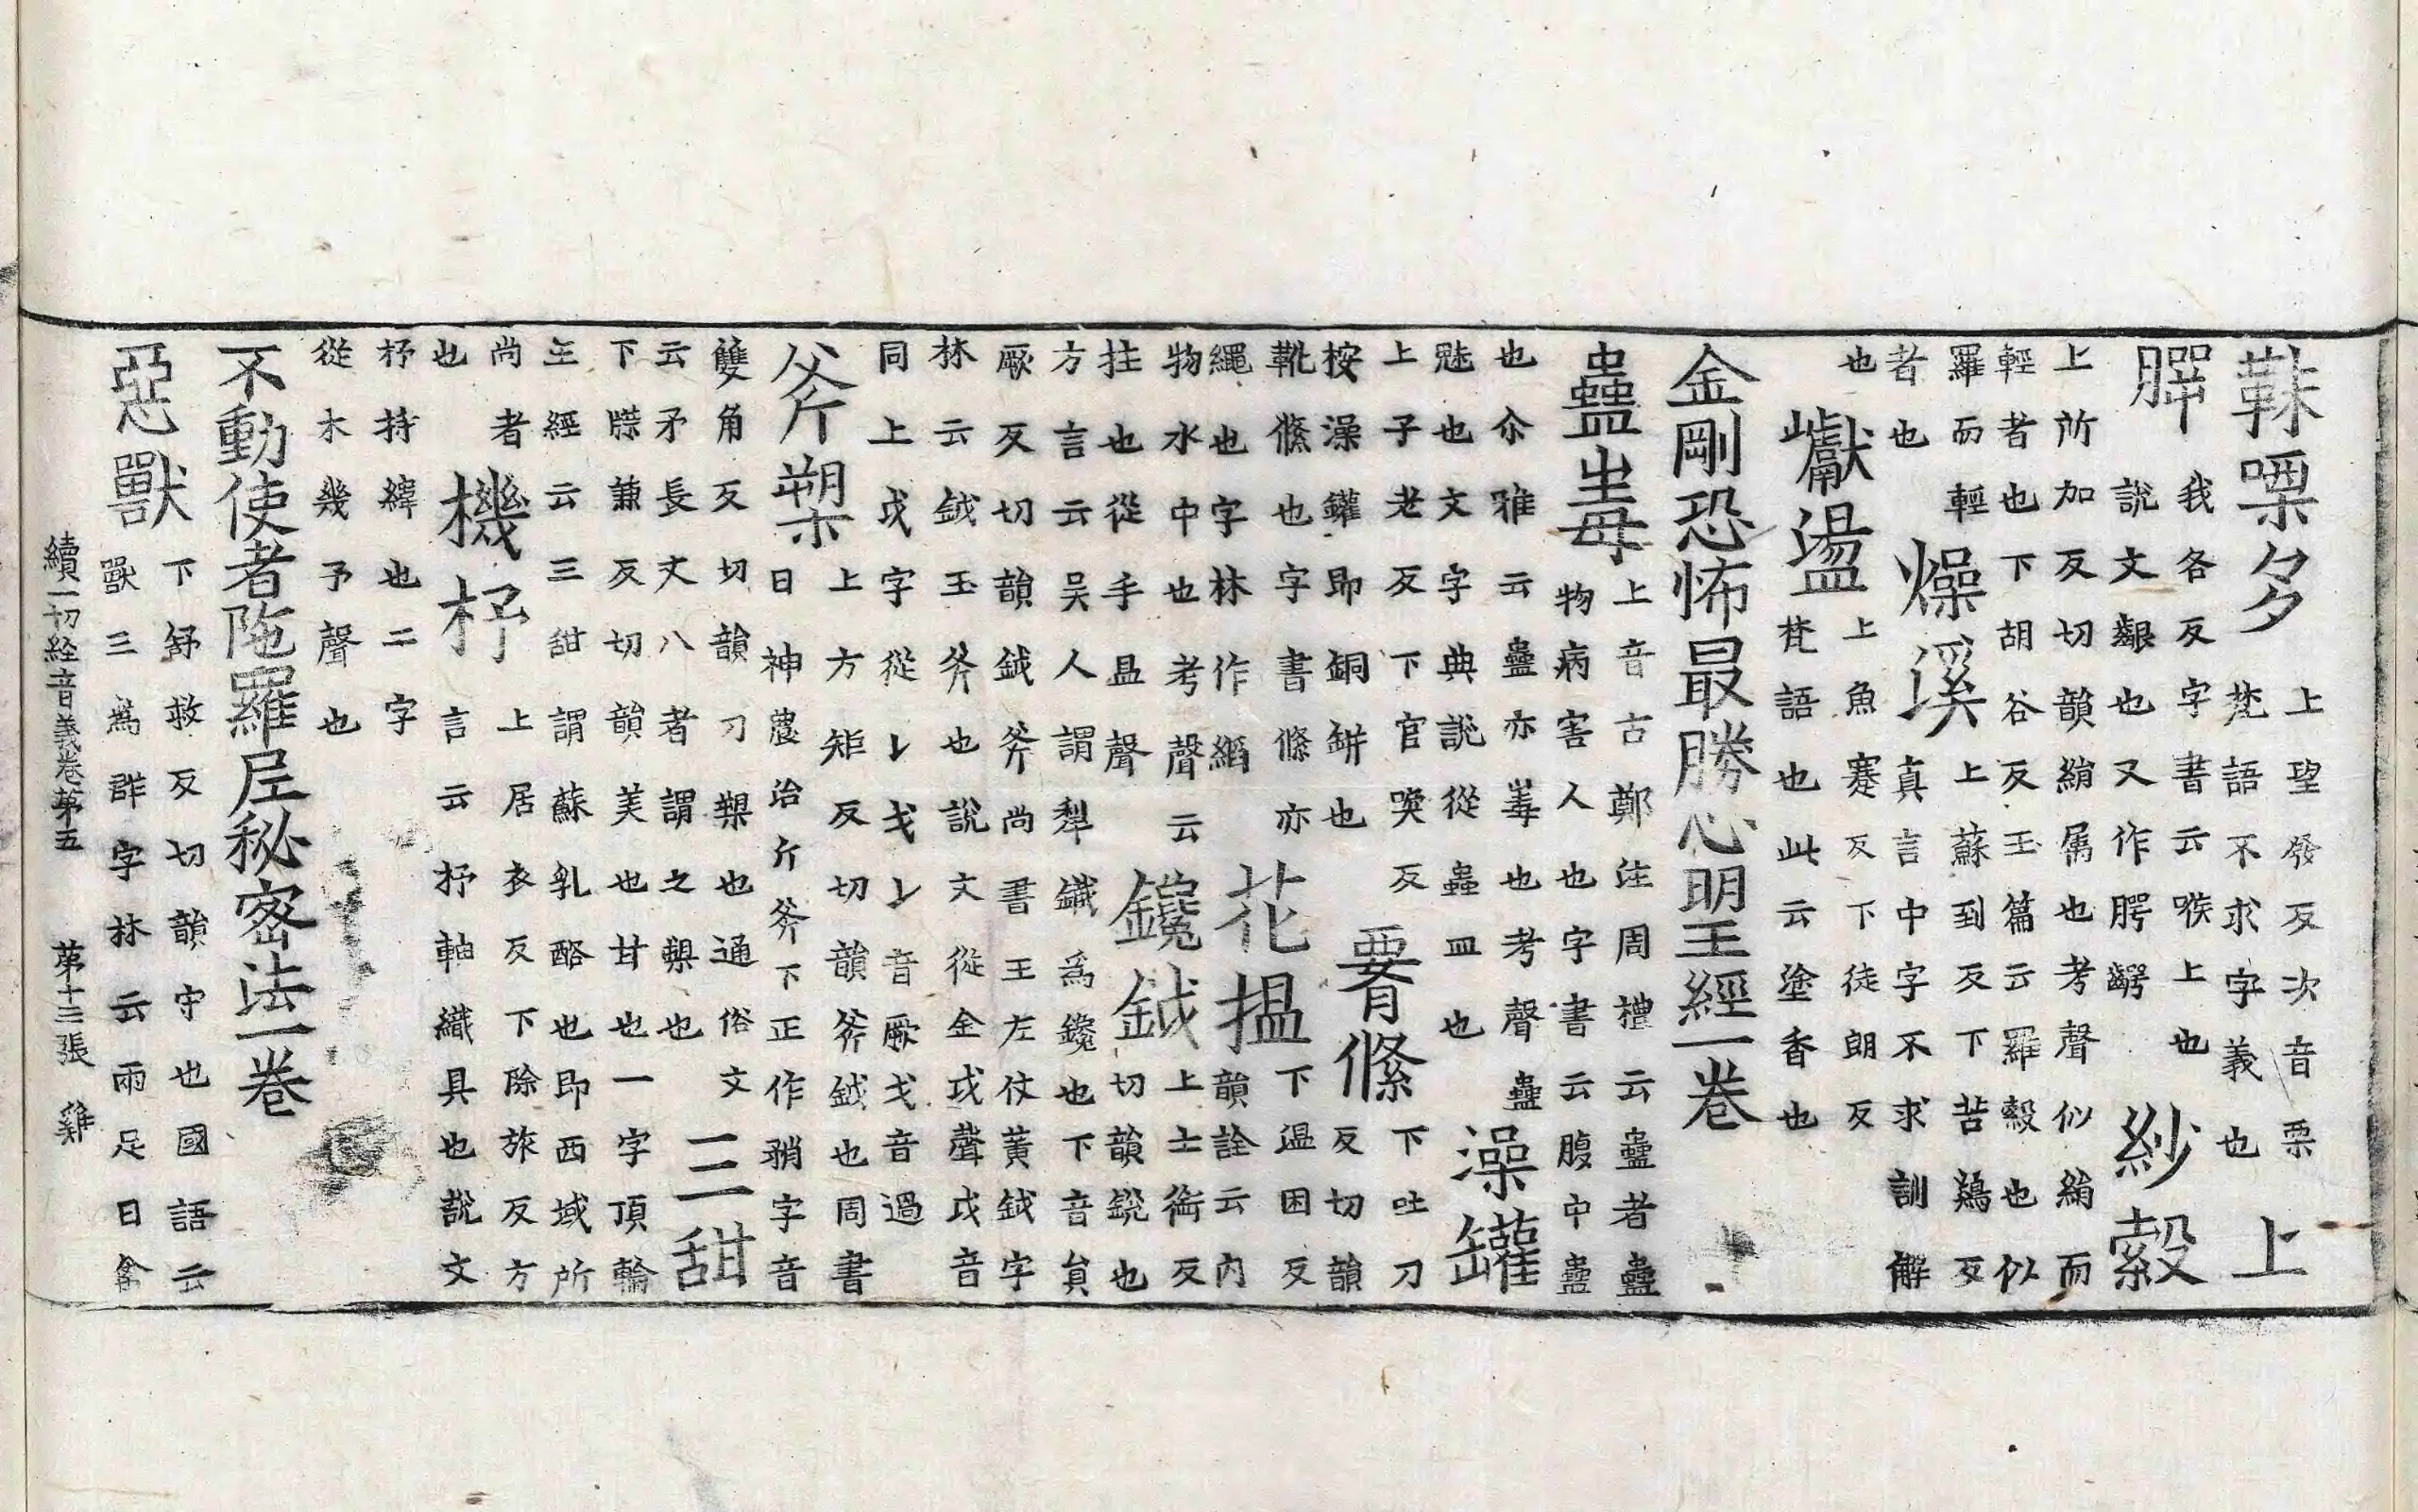 靺㗚多
上望發反次音栗
梵語不求字義也
上
腭
我各反字書云喉上也
說文齶也又作腭齶
紗縠
上所加反切韻綃屬也考聲似綃而
輕者也下胡谷反玉篇云羅縠也似
羅而輕
者也
燥溪
上蘇到反下苦鷄反
真言中字不求訓解
也
巘盪
上魚蹇反下徒朗反
梵語也此云塗香也
金剛恐怖最勝心明王經一卷
蠱毒
上音古鄭注周禮云蠱者蠱
物病害人也字書云腹中蠱
也尒雅云蠱亦毒也考聲蠱
魅也文字典說從蟲皿也
澡罐
上子老反下官喚反
按澡鑵即銅缾也
腰絛
下吐刀
反切韻
靴絛也字書絛亦
繩也字林作縚
花揾
下温困反
韻詮云内
物水中也考聲云
拄也從手昷聲
鑱鉞
上士銜反
切韻鋭也
方言云吴人謂犁鐵爲鑱也下音負
厥反切韻鉞斧尚書王左仗黄鉞字
林云鉞玉斧也說文從金戉聲戉音
同上戉字從𠄌戈𠄌音厥戈音過
斧槊
上方矩反切韻斧鉞也周書
日神農治斤斧下正作矟字音
雙角反切韻刀槊也通俗文
云矛長丈八者謂之槊也
三甜
下牒兼反切韻美也甘也一字頂輪
王經云三甜謂蘇乳酪也即西域所
尚者
也
機杼
上居衣反下除旅反方
言云杼軸織具也說文
杼持緯也二字
從木幾予聲也
不動使者陁羅尼秘密法一卷
惡獸
下舒救反切韻守也國語云
獸三爲群字林云兩足曰禽
續一切經音義卷第五　第十三張　雞